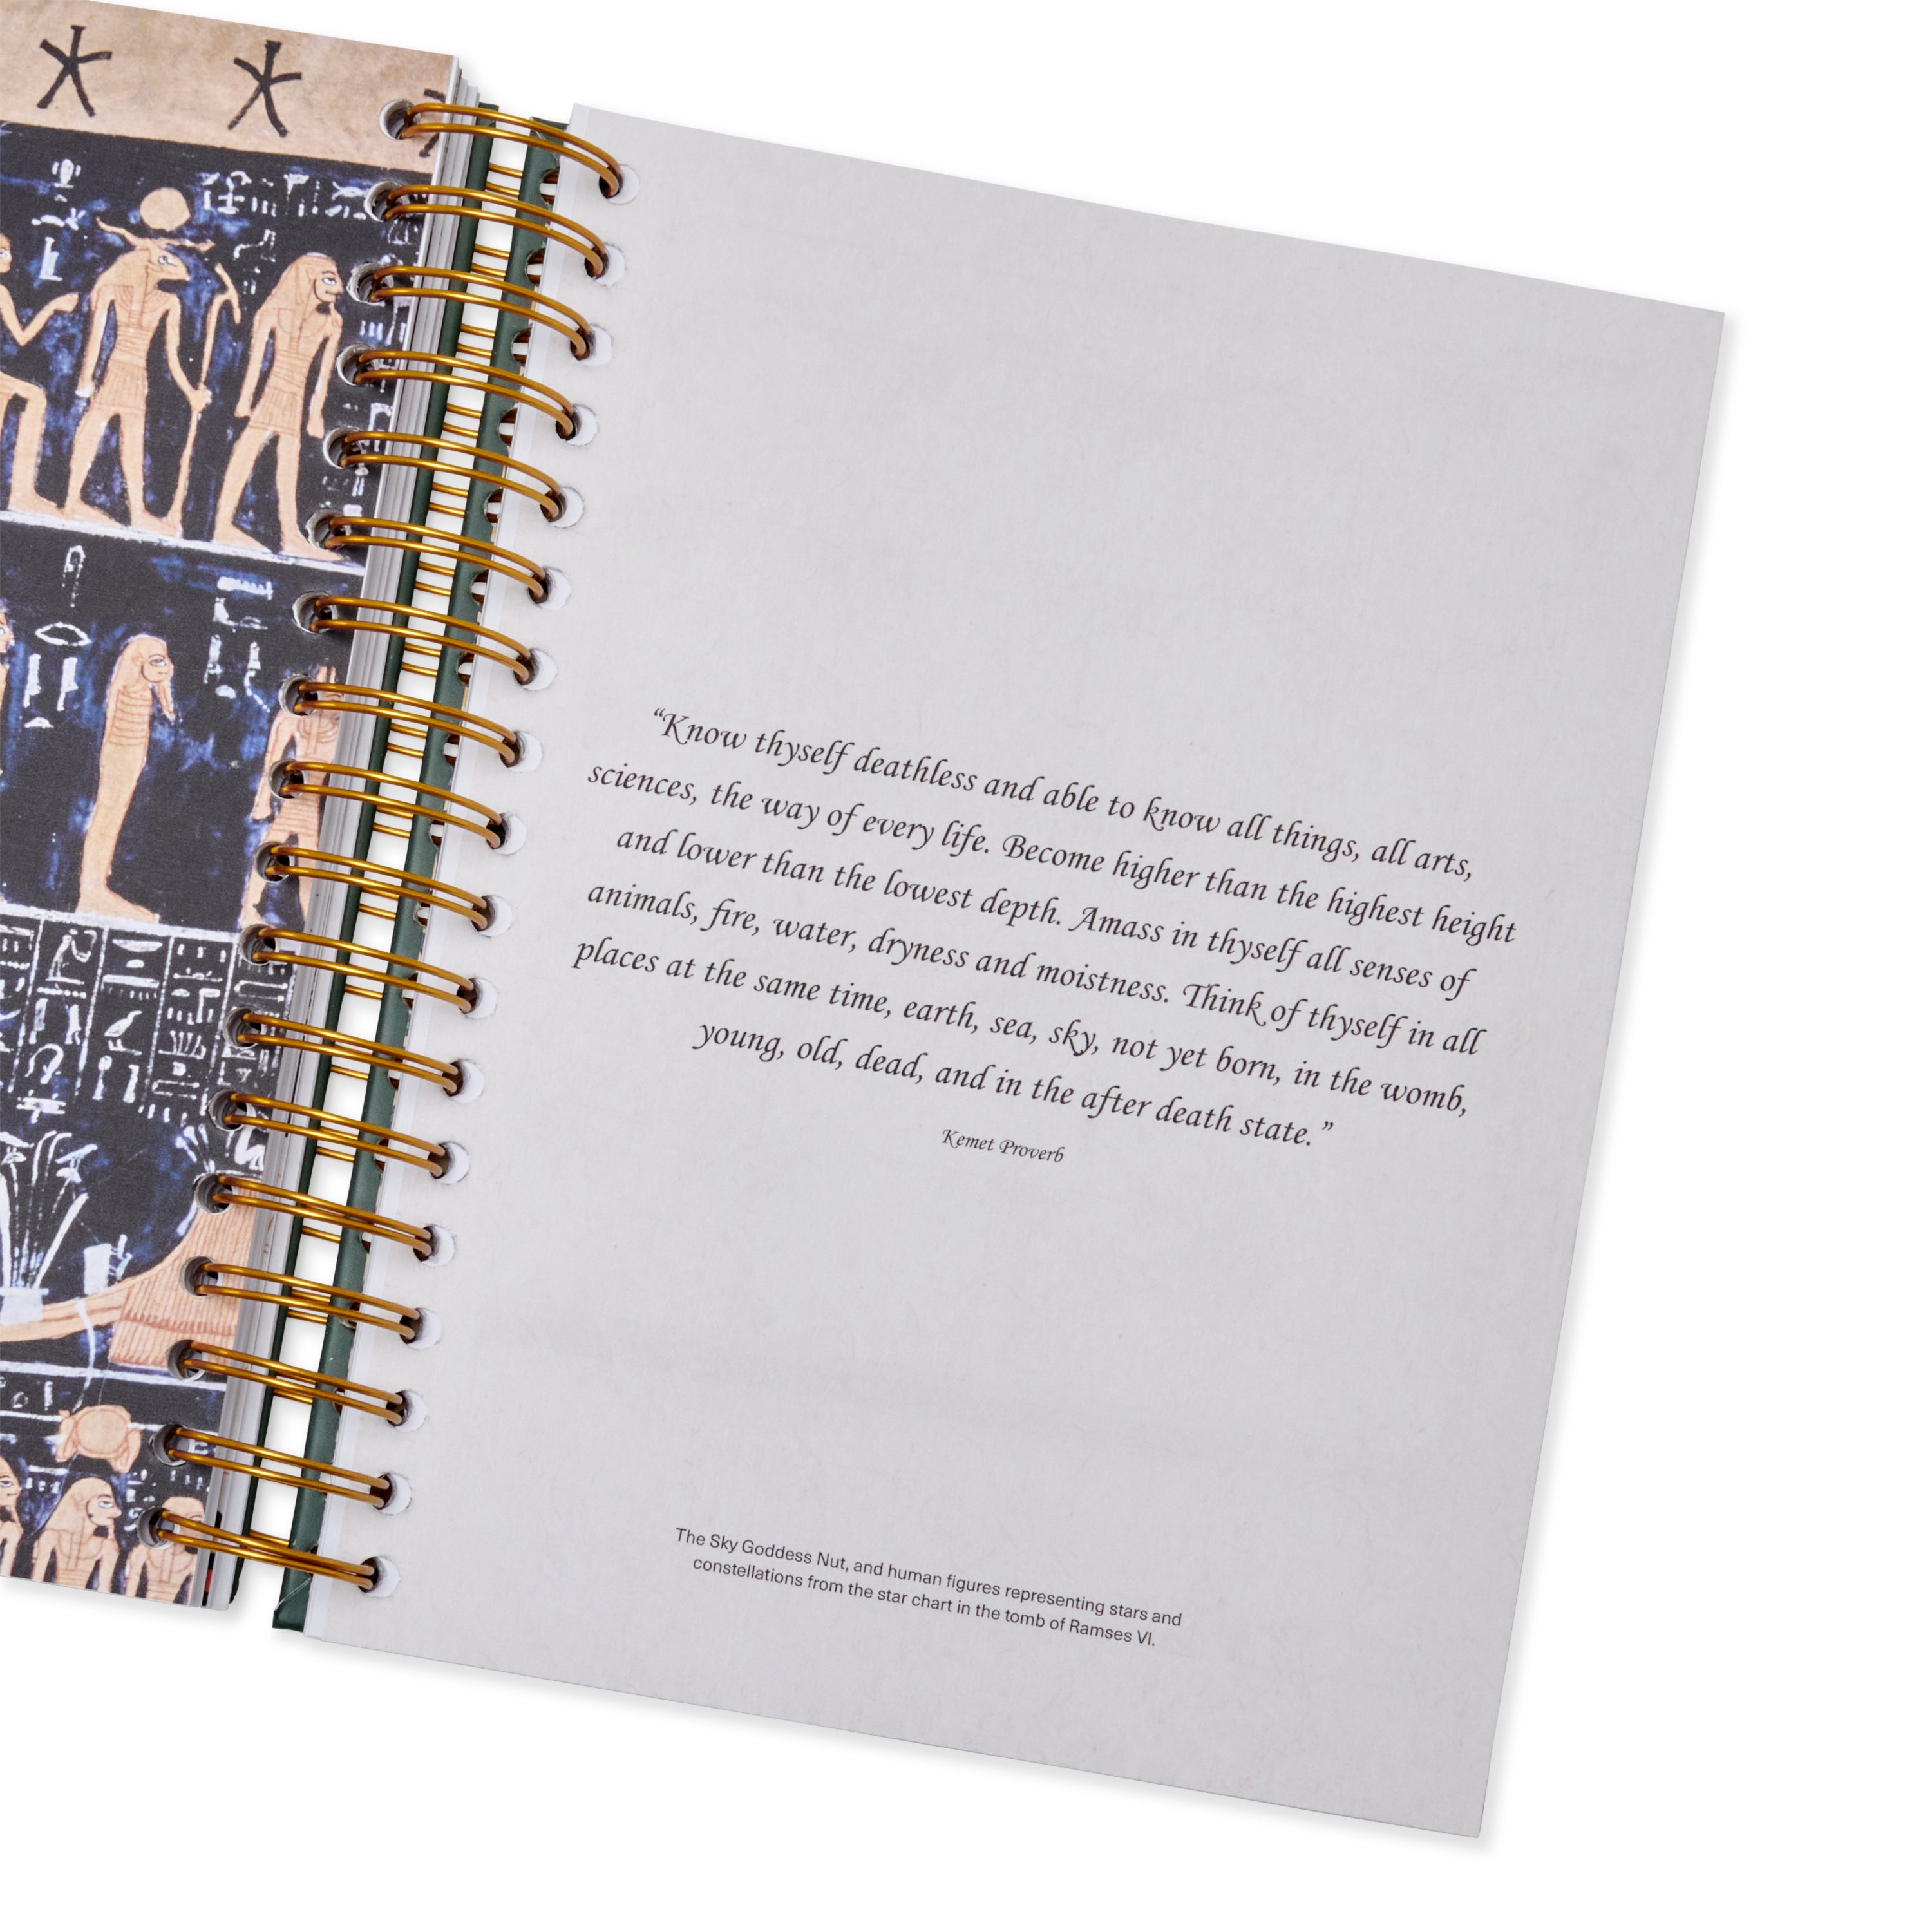 “Know thyself deathless and able to know all things, all arts,
sciences, the way of every life. Become higher than the highest height
and lower than the lowest depth. Amass in thyself all senses of
animals, fire, water, dryness and moistness. Think of thyself in all
places at the same time, earth, sea, sky, not yet born, in the womb,
young, old, dead, and in the after death state.”
Kemet Proverb
The Sky Goddess Nut, and human figures representing stars and
constellations from the star chart in the tomb of Ramses VI.